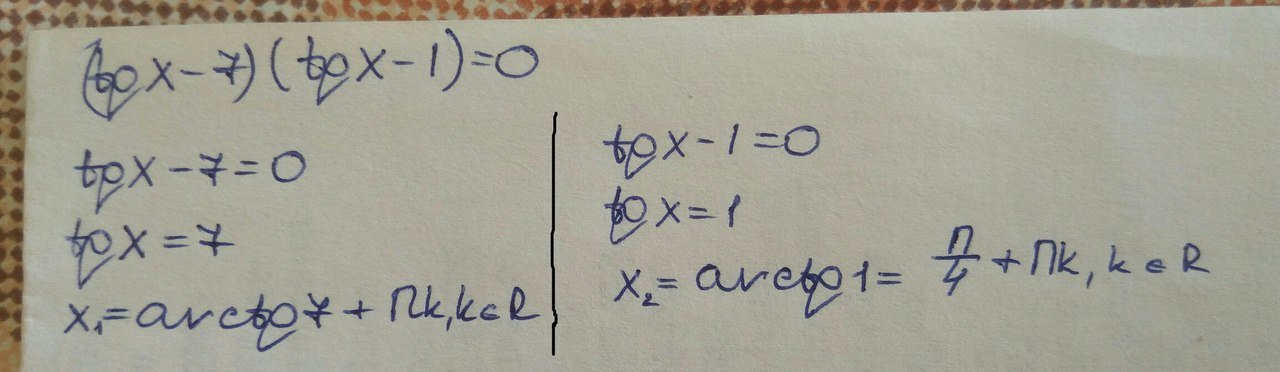 (tgx-7)(tgx-1)=0
tgx-7=0
tgx=7
x₁=arctg7+Пk,k∈R
tgx-1=0
tgx=1
x₂=arctg1=П/4+Пk,k∈R